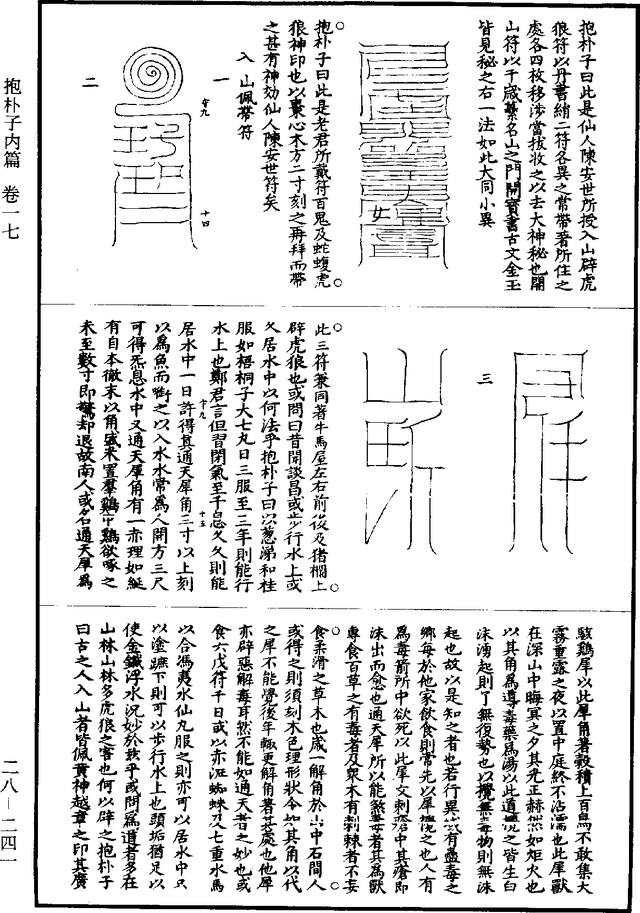 抱朴子曰此是仙人陳安世所授入山辟虎
狼符以丹書絹二符各異之常帶著所住之
處各四枚移涉當拔收之以去大神秘也開
山符以千歲虆名山之門開寶書古文金玉
皆見秘之右一法如此大同小異
抱朴子曰此是老君所戴符百鬼及蛇蝮虎
狼神印也以棗心木方二寸刻之再拜而帶
之甚有神効仙人陳安世符矣
入山佩帶符
一
二
三
此三符兼同著牛馬屋左右前後及猪欄上
辟虎狼也或問曰昔聞談昌或步行水上或
久居水中以何法乎抱朴子曰以葱涕和桂
服如梧桐子大七丸日三服至三年則能行
水上也鄭君言但習閉氣至千息久久則能
居水中一日許得真通天犀角三寸以上刻
以爲魚而銜之以入水水常爲人開方三尺
可得炁息水中又通天犀角有一赤理如綖
有自本徹末以角盛米置羣鷄中鷄欲啄之
未至數寸即驚却退故南人或名通天犀爲
駭鷄犀以此犀角著穀積上百鳥不敢集大
霧重露之夜以置中庭終不沾濡也此犀獸
在深山中晦冥之夕其光正赫然如炬火也
以其角爲導毒藥爲湯以此道攪之皆生白
沫湧起則了無復勢也以攪無毒物則無沫
起也故以是知之者也若行異域有蠱毒之
鄉每於他家飲食則常先以犀攪之也人有
爲毒箭所中欲死以此犀叉刺瘡中其瘡即
沫出而愈也通天犀所以能煞毒者其爲獸
專食百草之有毒者及衆木有刺棘者不妄
食柔滑之草木也歲一解角於山中石間人
或得之則須刻木色理形狀令如其角以代
之犀不能覺後年輒更解角著其處也他犀
亦辟惡解毒耳然不能如通天者之妙也或
食六戊符千日或以赤班蜘蛛及七重水馬
以合馮夷水仙丸服之則亦可以居水中只
以塗蹠下則可以步行水上也頭垢猶足以
使金鐵浮水況妙於兹乎或問爲道者多在
山林山林多虎狼之害也何以辟之抱朴子
曰古之人入山者皆佩黄神越章之印其廣
十四
十五
抱朴子内篇 卷一七
二八—二四一